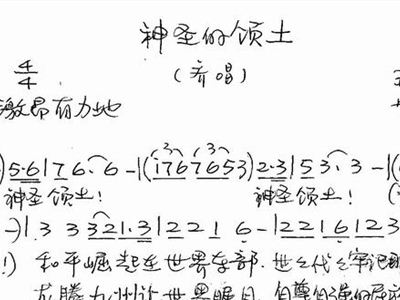 神圣的领土
4/4
(齐唱)
激昂有力地
)5·6|76·6-|(i767653)2·3|153·3-|(
神圣领土! 神圣领土!
-)|1 3 3 321·3|2 2 1 6-|221 6123
!) 和平崛起在世界东部·世世代代牢记
龙腾九州让世界瞩目